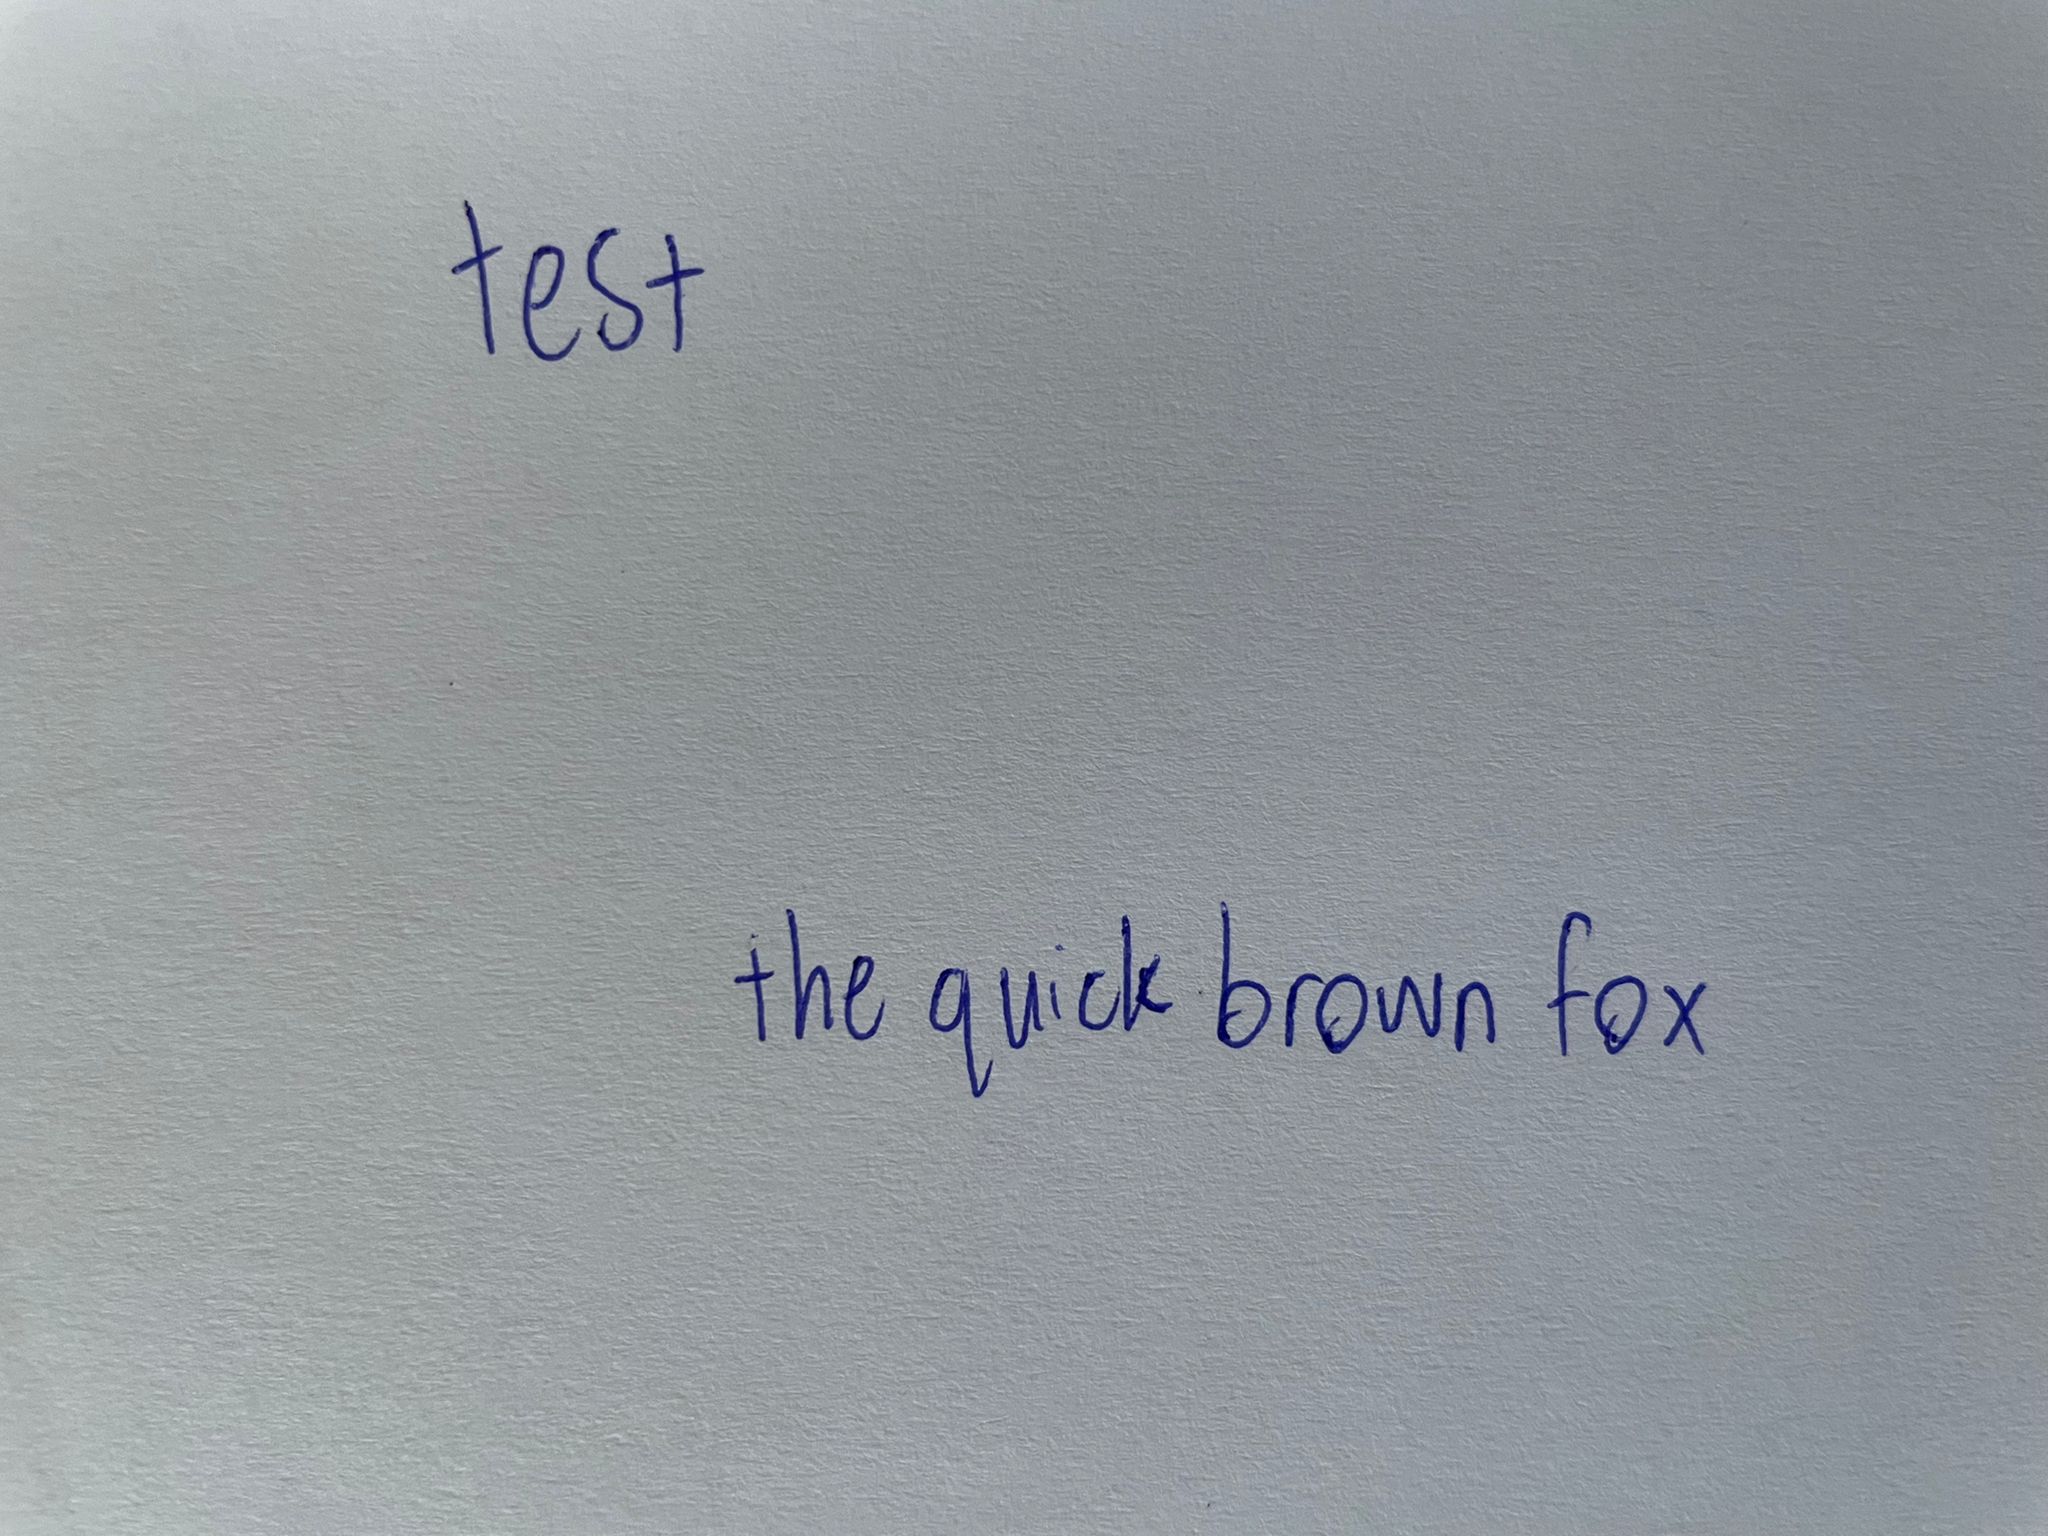 test
the quick brown fox